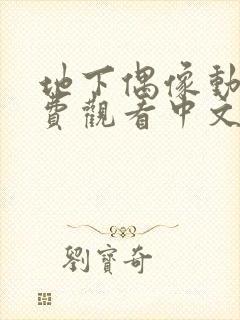 地下偶像動
費觀看中文
劉寶奇